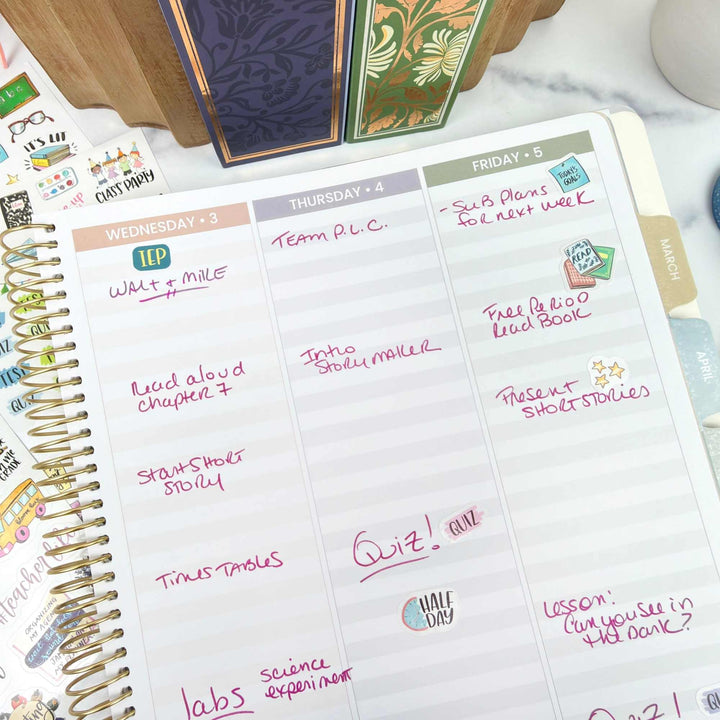 abc
IT'S
LIT
CLASS PARTY
WEDNESDAY • 3
IEP
WALT & MIKE
Read aloud
chapter 7
Start Short
STORY
TIMES TABLES
labs
science
experiment
THURSDAY • 4
TEAM P.L.C.
Intro
STORY MAKER
Quiz!
QUIZ
HALF
DAY
FRIDAY • 5
TODAY'S
GOALS
- SUB PLANS
for next week
READ
Free PERIOD
Read BOOK
Present
SHORT STORIES
Lesson:
Can you see in
the DARK?
Quiz!
MARCH
APRIL
TEST
ORGANIZING
MY AGENDA